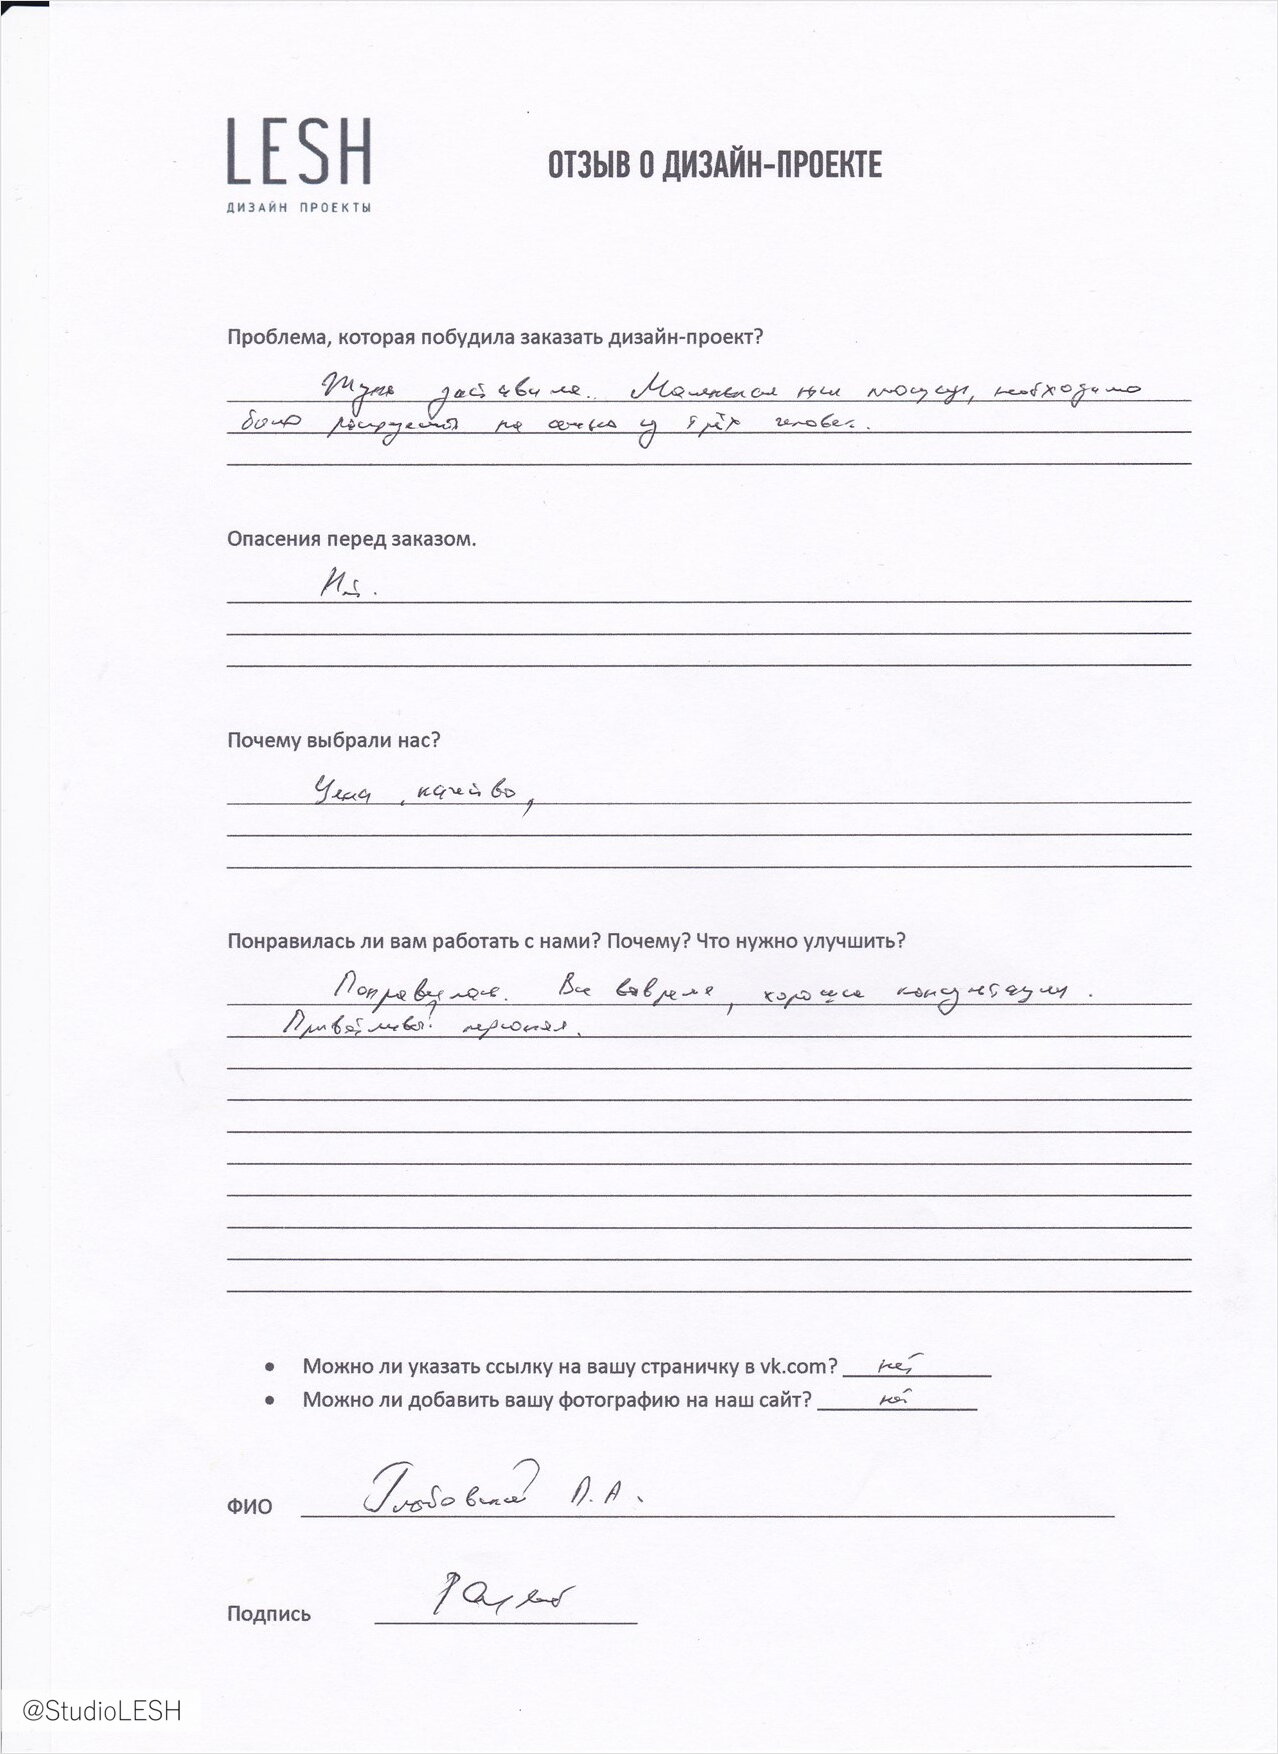 LESH
ДИЗАЙН ПРОЕКТЫ
ОТЗЫВ О ДИЗАЙН-ПРОЕКТЕ
Проблема, которая побудила заказать дизайн-проект?
заставила. Маленькая необходимо
было на семью из трёх человек.
Опасения перед заказом.
Почему выбрали нас?
Цена, качество,
Понравилась ли вам работать с нами? Почему? Что нужно улучшить?
Понравилось. Все вовремя, хорошие консультации.
Приветливый персонал.
Можно ли указать ссылку на вашу страничку в vk.com? нет
Можно ли добавить вашу фотографию на наш сайт? нет
ФИО П.А.
Подпись
@StudioLESH